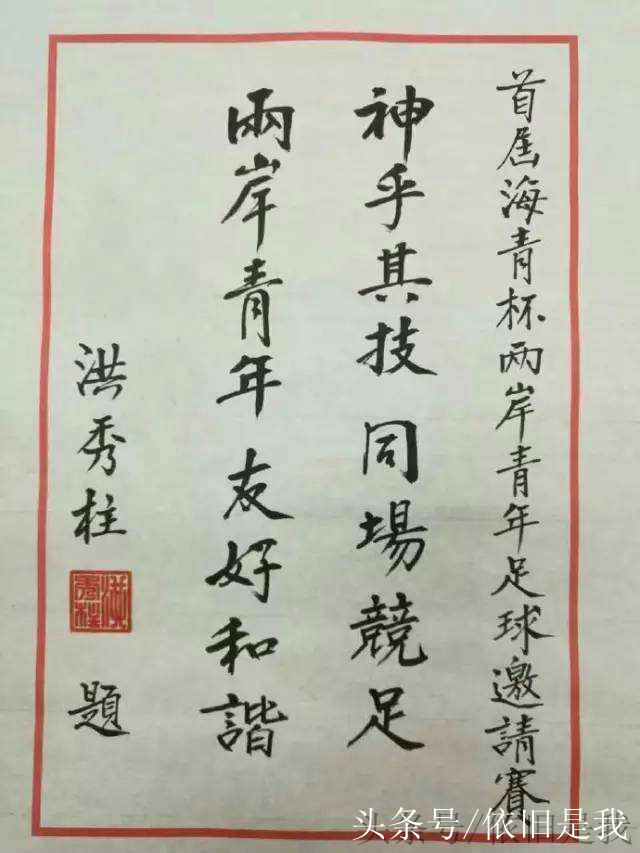 首屆海青杯两岸青年足球邀請賽
神乎其技 同場競足
兩岸青年 友好和諧
洪秀柱
洪秀柱
題
头条号/依旧是我